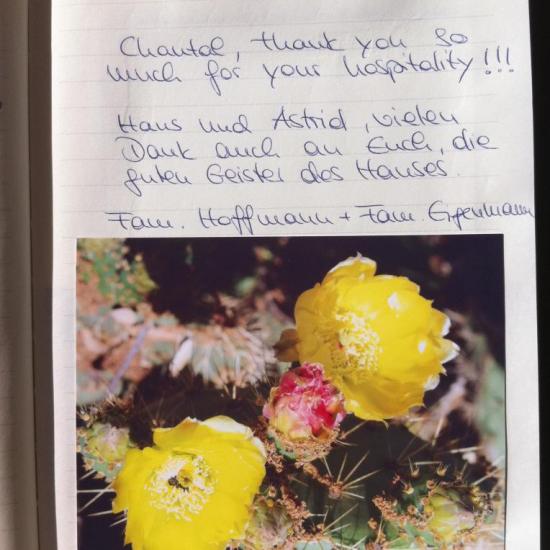 Chantal, thank you so
much for your hospitality!!!
Hans und Astrid, vielen
Dank auch an Euch, die
guten Geister des Hauses.
Fam. Hoffmann + Fam.